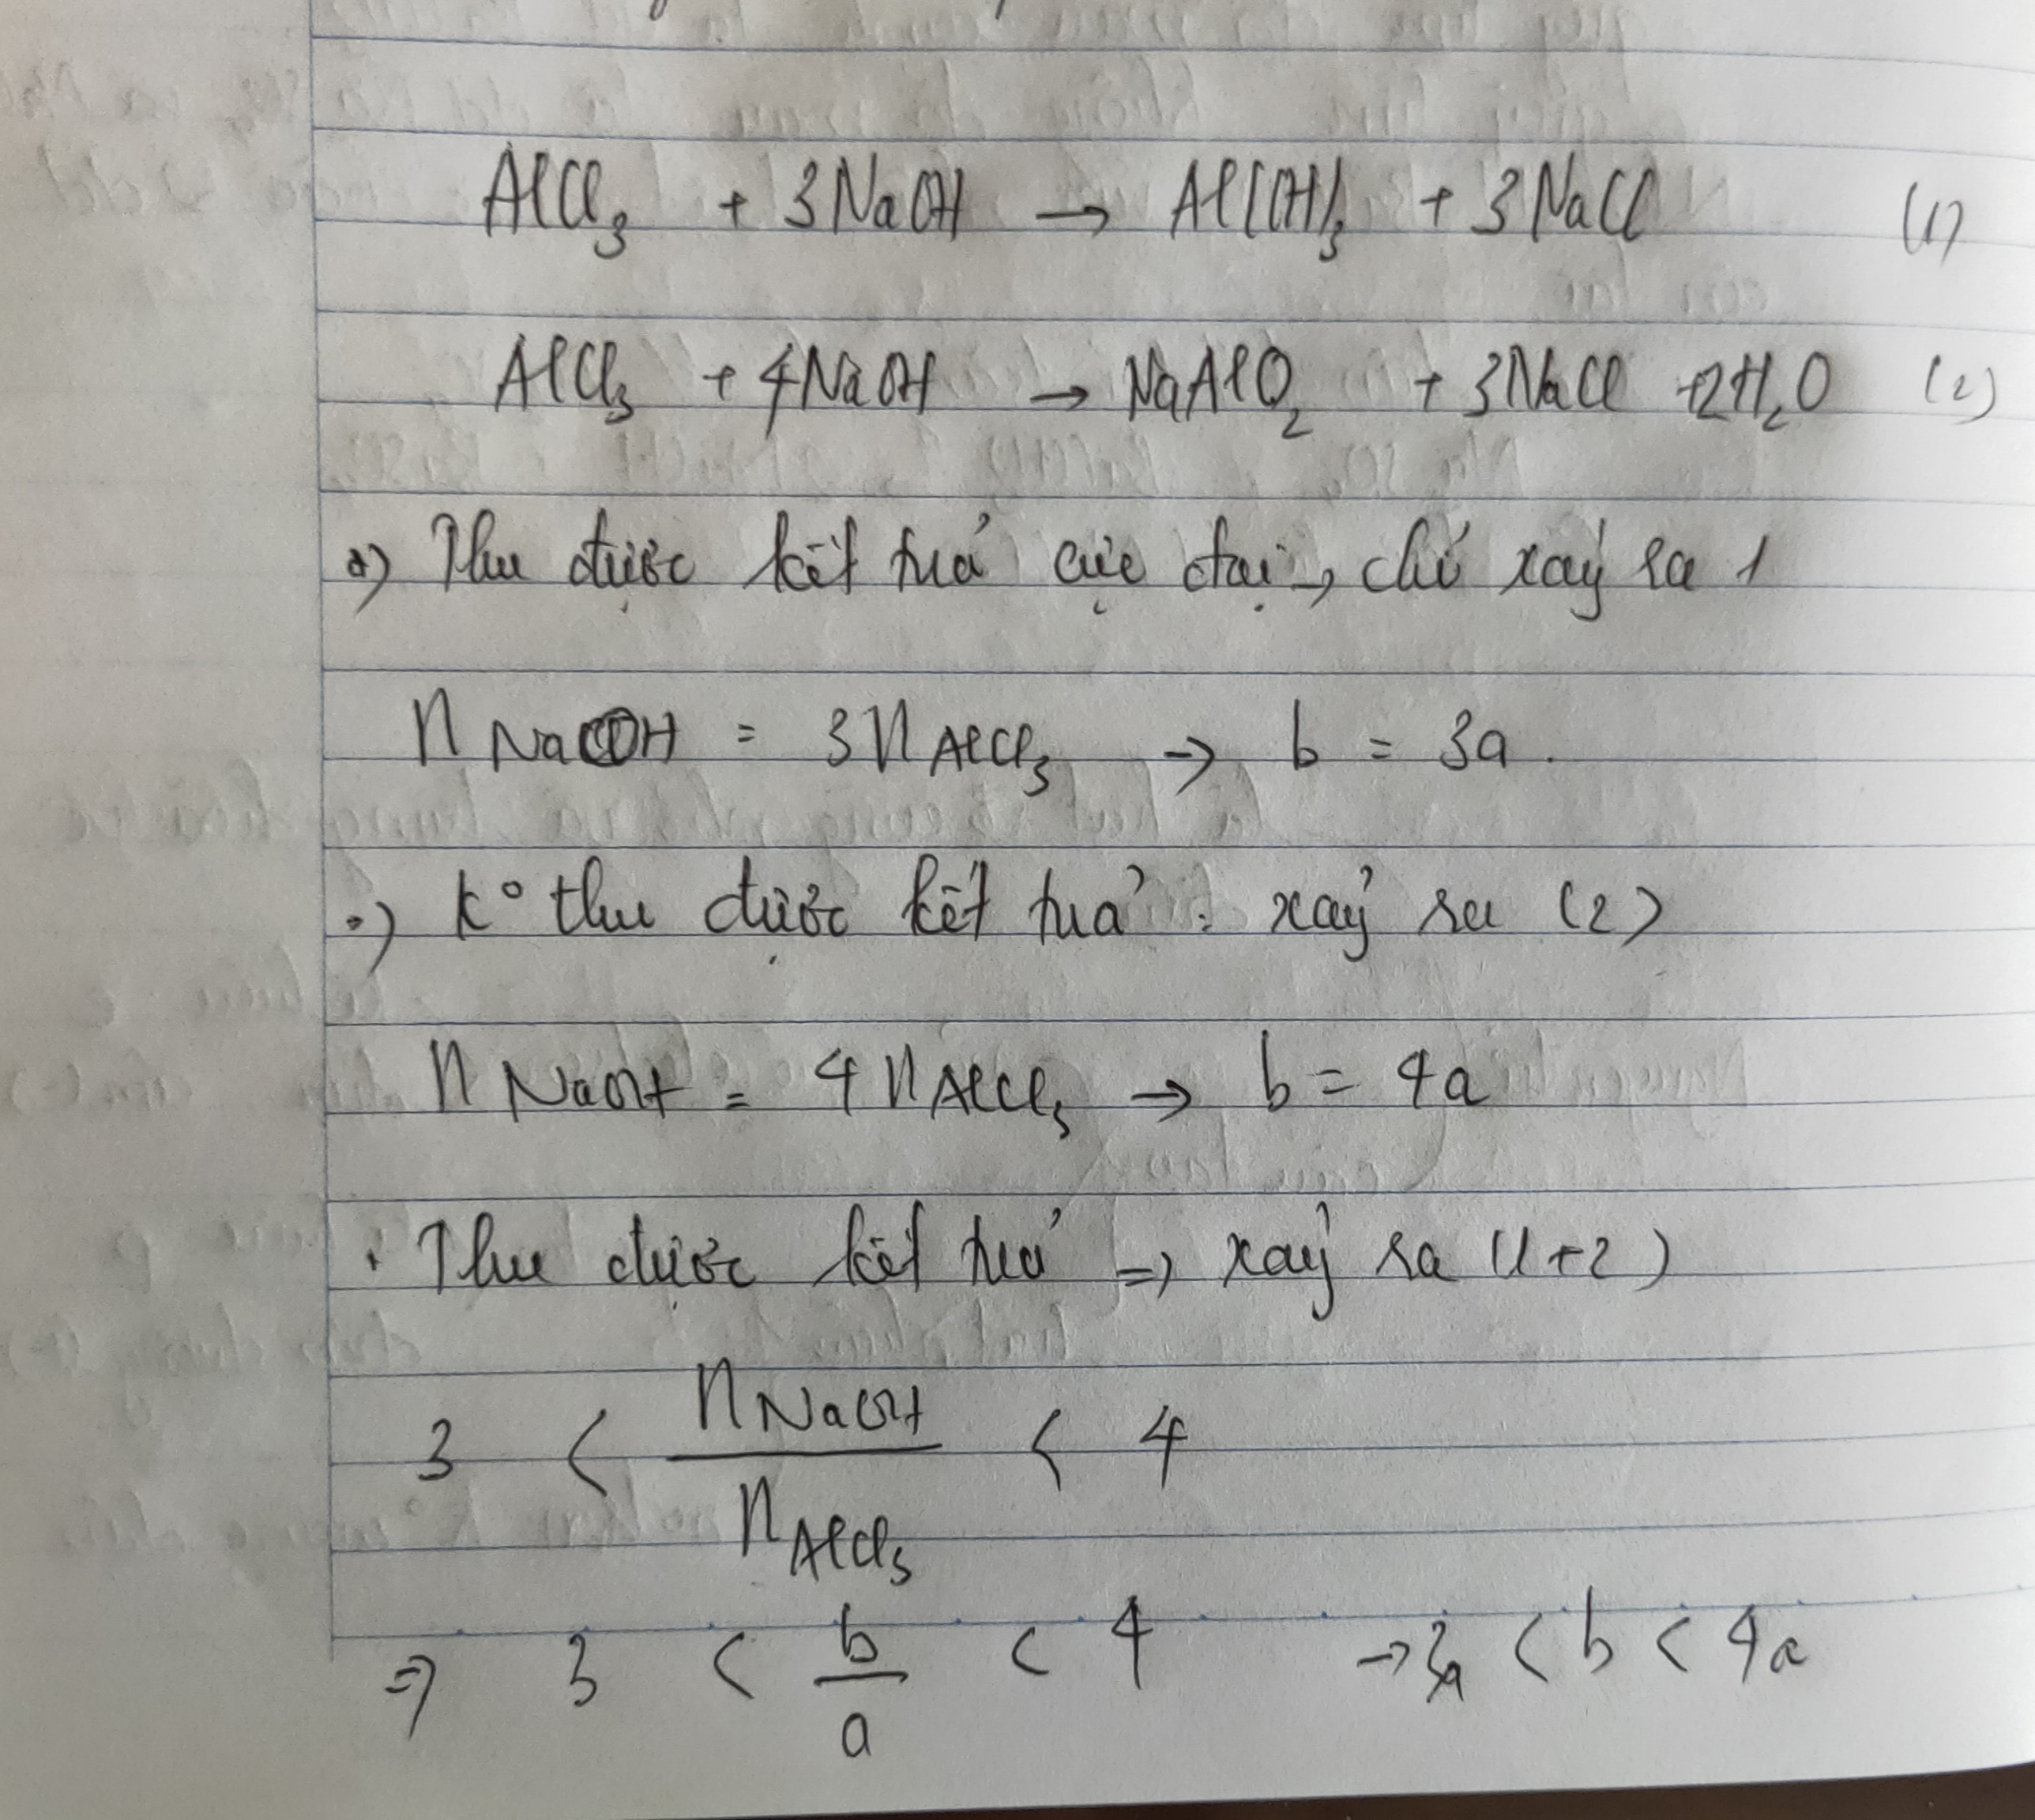 AlCl₃ + 3NaOH → Al(OH)₃ + 3NaCl (1)
AlCl₃ + 4NaOH → NaAlO₂ + 3NaCl + 2H₂O (2)
•) Thu được kết tủa cực đại → chỉ xảy ra 1
n NaOH = 3 n AlCl₃ → b = 3a.
•) K° thu được kết tủa : xảy ra (2)
n NaOH = 4 n AlCl₃ → b = 4a
• Thu được kết tủa => xảy ra (1+2)
3 < n NaOH / n AlCl₃ < 4
=> 3 < b / a < 4 → 3a < b < 4a